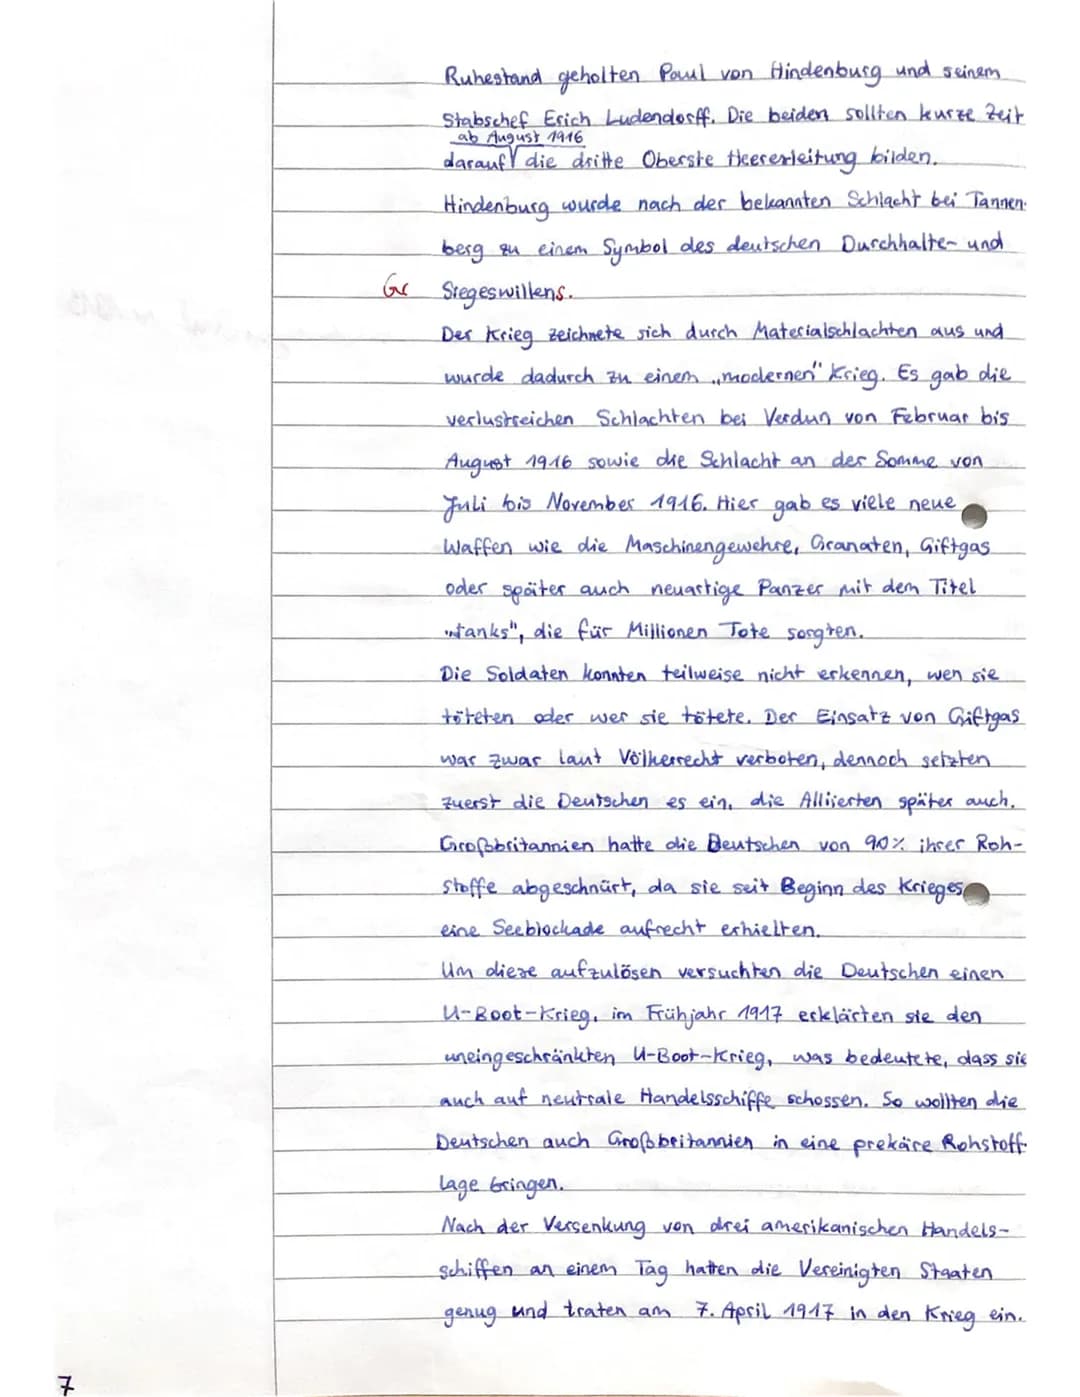 Ruhestand geholten Paul von Hindenburg und seinem
Stabschef Erich Ludendorff. Die beiden sollten kurze Zeit
ab August 1916
darauf die dritte Oberste Heeresleitung bilden.
Hindenburg wurde nach der bekannten Schlacht bei Tannen-
berg zu einem Symbol des deutschen Durchhalte- und
Gr Siegeswillens.
Der Krieg zeichnete sich durch Materialschlachten aus und
wurde dadurch zu einem „modernen" Krieg. Es gab die
verlustreichen Schlachten bei Verdun von Februar bis
August 1916 sowie die Schlacht an der Somme von
Juli bis November 1916. Hier gab es viele neue
Waffen wie die Maschinengewehre, Granaten, Giftgas
oder später auch neuartige Panzer mit dem Titel
„tanks", die für Millionen Tote sorgten.
Die Soldaten konnten teilweise nicht erkennen, wen sie
töteten oder wer sie tötete. Der Einsatz von Giftgas
war zwar laut Völkerrecht verboten, dennoch setzten
zuerst die Deutschen es ein, die Alliierten später auch.
Großbritannien hatte die Deutschen von 90% ihrer Roh-
stoffe abgeschnürt, da sie seit Beginn des Krieges
eine Seeblockade aufrecht erhielten.
Um diese aufzulösen versuchten die Deutschen einen
U-Boot-Krieg, im Frühjahr 1917 erklärten sie den
uneingeschränkten U-Boot-Krieg, was bedeutete, dass sie
auch auf neutrale Handelsschiffe schossen. So wollten die
Deutschen auch Großbritannien in eine prekäre Rohstoff-
lage bringen.
Nach der Versenkung von drei amerikanischen Handels-
schiffen an einem Tag hatten die Vereinigten Staaten
genug und traten am 7. April 1917 in den Krieg ein.
7